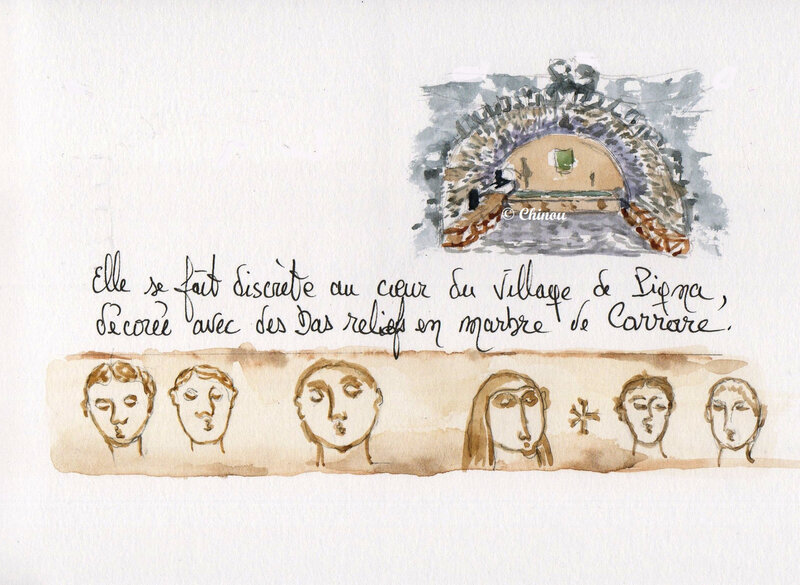 © Chinou
Elle se fait discrète au cœur du village de Pigna,
décorée avec des bas reliefs en marbre de Carrare.